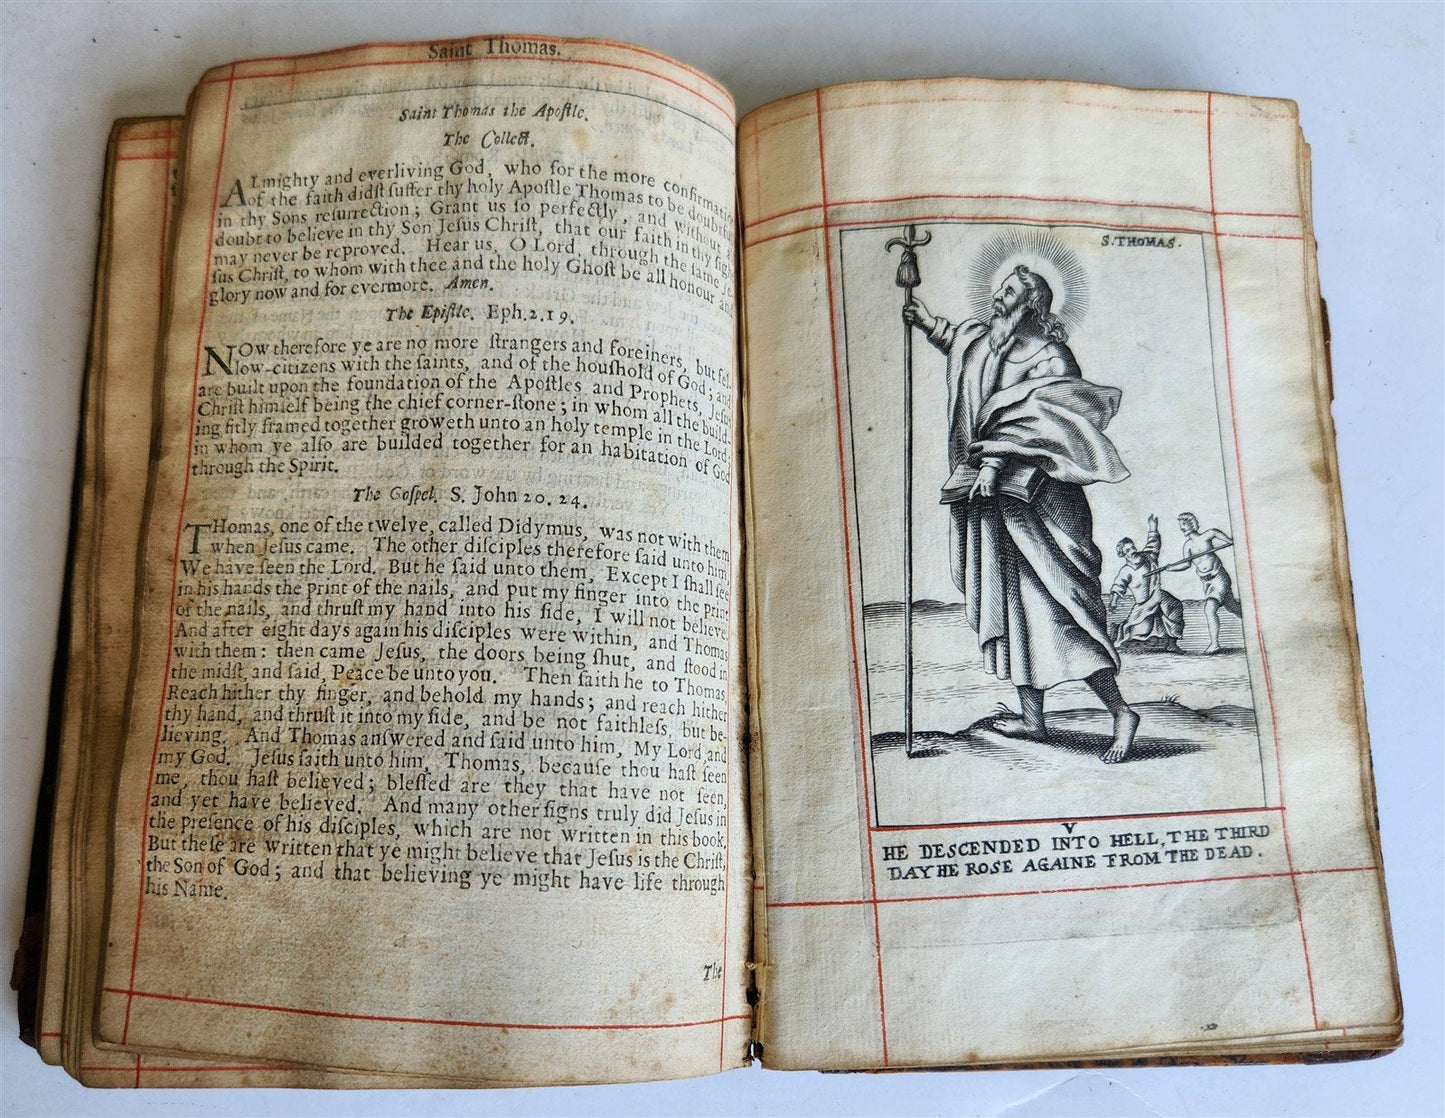 Saint Thomas.
Saint Thomas the Apoſtle.
The Collect.
ALmighty and everliving God, who for the more confirmation
of the faith didſt ſuffer thy holy Apoſtle Thomas to be doubtful
in thy Sons reſurrection; Grant us ſo perfectly, and without
doubt to believe in thy Son Jeſus Chriſt, that our faith in thy ſight
may never be reproved. Hear us, O Lord, through the ſame Je-
ſus Chriſt, to whom with thee and the holy Ghoſt be all honour and
glory now and for evermore. Amen.
The Epiſtle. Eph.2.19.
NOw therefore ye are no more ſtrangers and foreiners, but fel-
low-citizens with the ſaints, and of the houſhold of God; and
are built upon the foundation of the Apoſtles and Prophets, Jeſus
Chriſt himſelf being the chief corner-ſtone; in whom all the build-
ing fitly framed together groweth unto an holy temple in the Lord;
in whom ye alſo are builded together for an habitation of God
through the Spirit.
The Goſpel. S. John 20. 24.
THomas, one of the twelve, called Didymus, was not with them
when Jeſus came. The other diſciples therefore ſaid unto him,
We have ſeen the Lord. But he ſaid unto them, Except I ſhall ſee
in his hands the print of the nails, and put my finger into the print
of the nails, and thruſt my hand into his ſide, I will not believe.
And after eight days again his diſciples were within, and Thomas
with them: then came Jeſus, the doors being ſhut, and ſtood in
the midſt, and ſaid, Peace be unto you. Then ſaith he to Thomas,
Reach hither thy finger, and behold my hands; and reach hither
thy hand, and thruſt it into my ſide, and be not faithleſs, but be-
lieving. And Thomas anſwered and ſaid unto him, My Lord, and
my God. Jeſus ſaith unto him, Thomas, becauſe thou haſt ſeen
me, thou haſt believed; bleſſed are they that have not ſeen,
and yet have believed. And many other ſigns truly did Jeſus in
the preſence of his diſciples, which are not written in this book.
But theſe are written that ye might believe that Jeſus is the Chriſt,
the Son of God; and that believing ye might have life through
his Name.
The
S. THOMAS.
V
HE DESCENDED INTO HELL, THE THIRD
DAY HE ROSE AGAINE FROM THE DEAD.